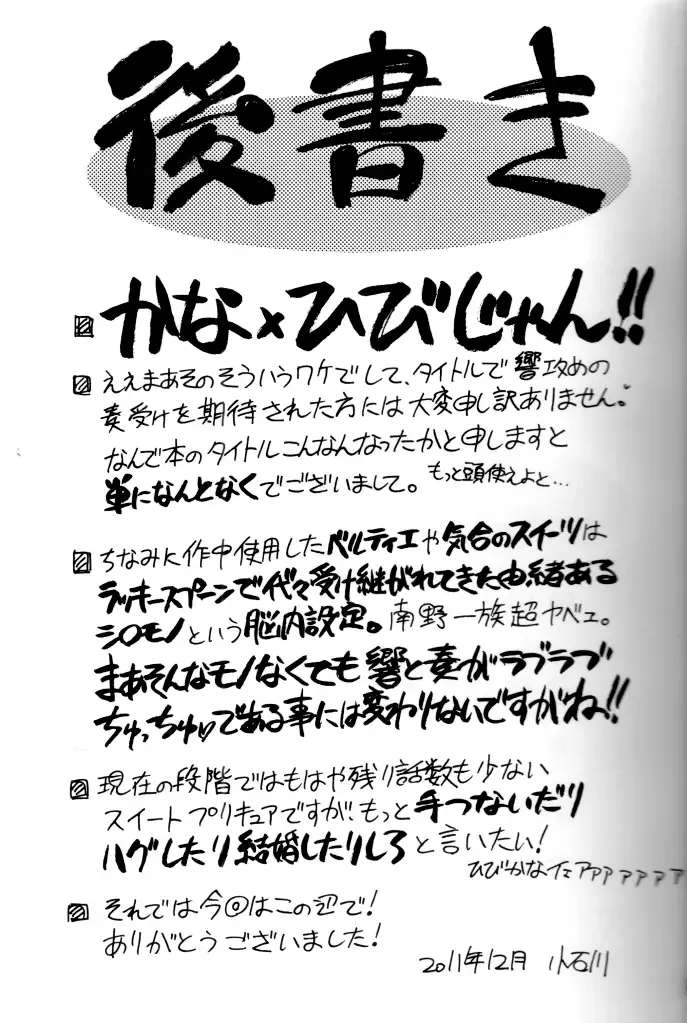 後書き
かな×ひびじゃん!!
ええまあそのそういうワケでして、タイトルで響攻めの
奏受けを期待された方には大変申し訳ありません。
なんで本のタイトルこんなんなったかと申しますと
単になんとなくでございまして。もっと頭使えよと…
ちなみに作中使用したベルティエや気合のスイーツは
ラッキースプーンで代々受け継がれてきた由緒ある
シロモノという脳内設定。南野一族超ヤベェ。
まあそんなモノなくても響と奏がラブラブ
ちゅっちゅッである事には変わりないですがね!!
現在の段階ではもはや残り話数も少ない
スイートプリキュアですが、もっと手つないだり
ハグしたり結婚したりしろと言いたい!
ひびかなイェアァァァァァァ
それでは今回はこの辺で!
ありがとうございました!
2011年12月 小石川